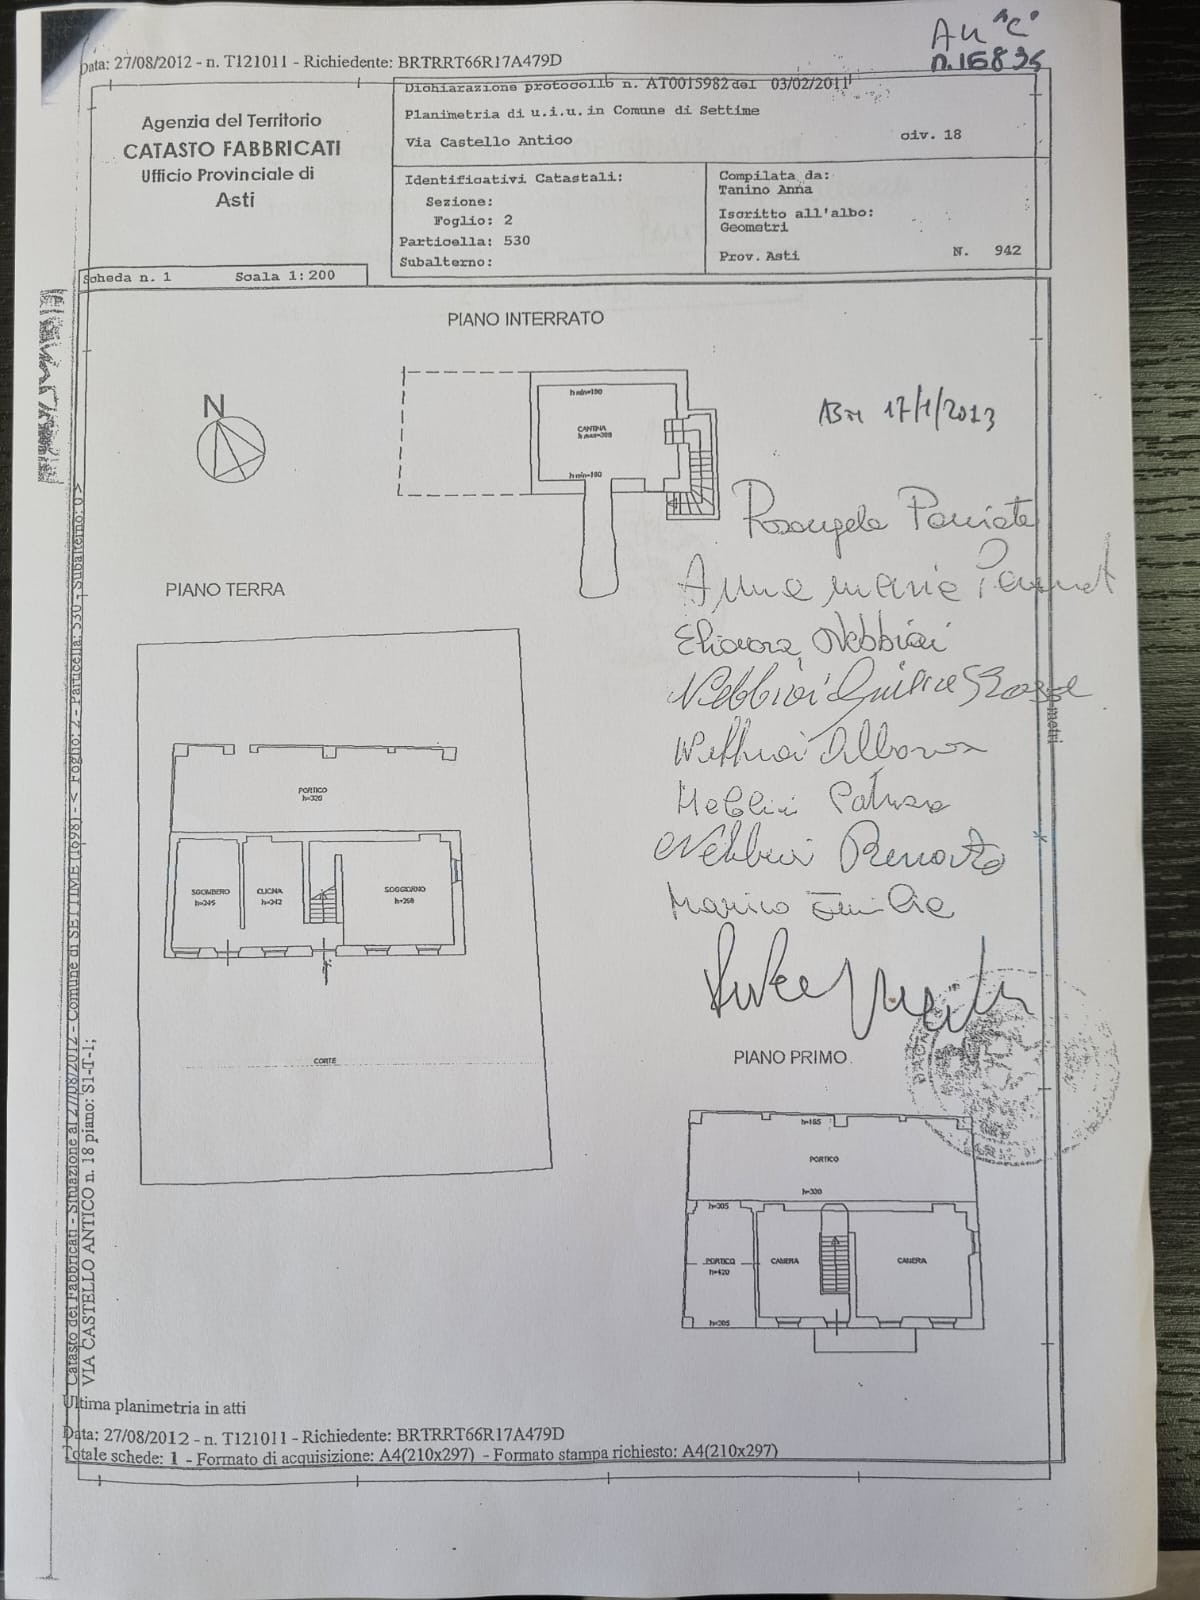 All "C"
n. 16835
Data: 27/08/2012 - n. T121011 - Richiedente: BRTRRT66R17A479D
Agenzia del Territorio
CATASTO FABBRICATI
Ufficio Provinciale di
Asti
Dichiarazione protocollo n. AT0015982 del 03/02/2011
Planimetria di u.i.u. in Comune di Settime
Via Castello Antico civ. 18
Identificativi Catastali:
Sezione:
Foglio: 2
Particella: 530
Subalterno:
Compilata da:
Tanino Anna
Iscritto all'albo:
Geometri
Prov. Asti N. 942
Scheda n. 1 Scala 1:200
PIANO INTERRATO
N
h min=180
CANTINA
h min=180
17/1/2013
Rosangela
PIANO TERRA
Anna Maria
Eleonora Nebbiai
Nebbiai
Nebbiai
Renato
Marico Emilia
metri
PORTICO
h=320
SGOMBERO
h=245
CUCINA
h=242
SOGGIORNO
h=258
CORTE
PIANO PRIMO
h=185
PORTICO
h=330
h=305
PORTICO
h=420
CAMERA
CAMERA
h=305
Catasto dei Fabbricati - Situazione al 27/08/2012 - Comune di SETTIME (I698) - < Foglio: 2 - Particella: 530 - Subalterno: 0 >
VIA CASTELLO ANTICO n. 18 piano: S1-T-1;
Ultima planimetria in atti
Data: 27/08/2012 - n. T121011 - Richiedente: BRTRRT66R17A479D
Totale schede: 1 - Formato di acquisizione: A4(210x297) - Formato stampa richiesto: A4(210x297)